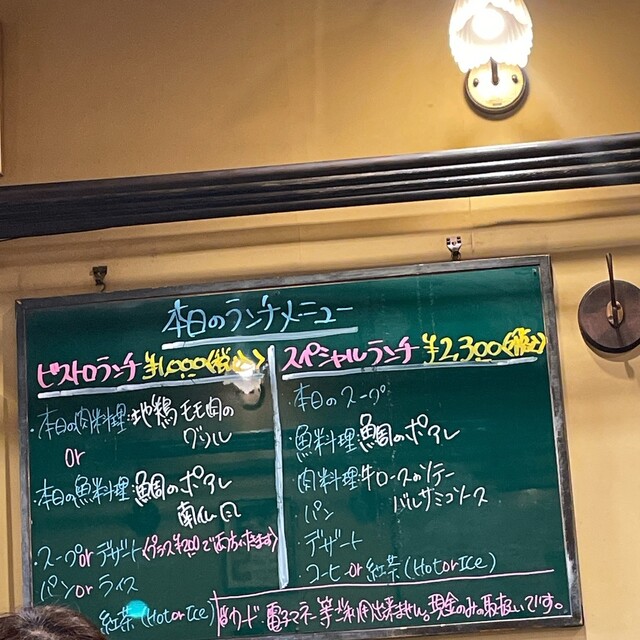 本日のランチメニュー
ビストロランチ ¥1,000(税込)
・本日の肉料理:地鶏モモ肉の
グリル
or
本日の魚料理:鯛のポアレ
南仏風
・スープorデザート(プラス¥200で両方いただけます)
パンorライス
紅茶(HotorIce)
スペシャルランチ ¥2,300(税込)
・本日のスープ
・魚料理:鯛のポアレ
肉料理:牛ロースのソテー
バルサミコソース
・パン
・デザート
・コーヒーor紅茶(HotorIce)
カード・電子マネー等ご利用出来ません。現金のみの取扱いです。